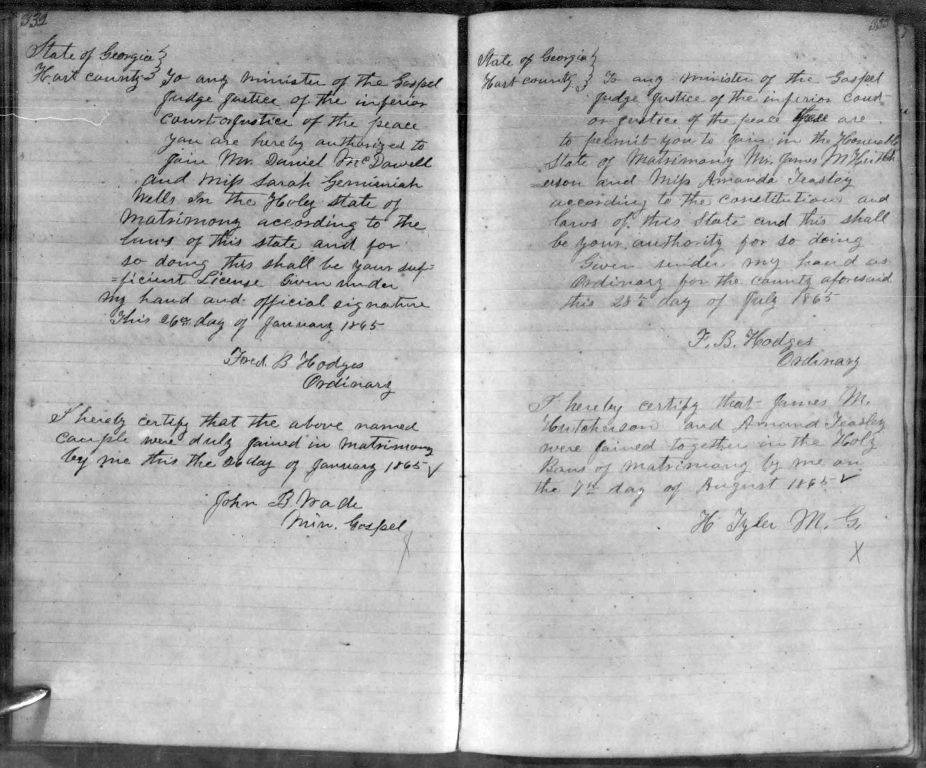 332
State of Georgia }
Hart county } To any minister of the Gospel
Judge Justice of the inferior
court or Justice of the peace
You are hereby authorized to
join Mr. Daniel McDowell
and Miss Sarah Gemimiah
Wells In the Holy state of
Matrimony according to the
laws of this state and for
so doing this shall be your suf-
=ficient License Given under
my hand and official signature
This 26th day of January 1865
Fred. B Hodges
Ordinary
I hereby certify that the above named
couple were duly joined in matrimony
by me this the 26 day of January 1865 ✓
John B. Wade
Min. Gospel
X
333
State of Georgia }
Hart county } To any minister of the Gospel
Judge Justice of the inferior court
or justice of the peace these are
to permit you to join in the Honerable
State of Matrimony Mr. James M Hutch
=erson and Miss Amanda Teasley
according to the constitution and
laws of this State and this shall
be your authority for so doing
Given under my hand as
Ordinary for the county aforesaid
this 28th day of July 1865
F. B. Hodges
Ordinary
I hereby certify that James M.
Hutcherson and Amand Teasley
were joined together in the Holy
Bans of matrimony by me on
the 7th day of August 1865 ✓
H Tyler M. G.
X